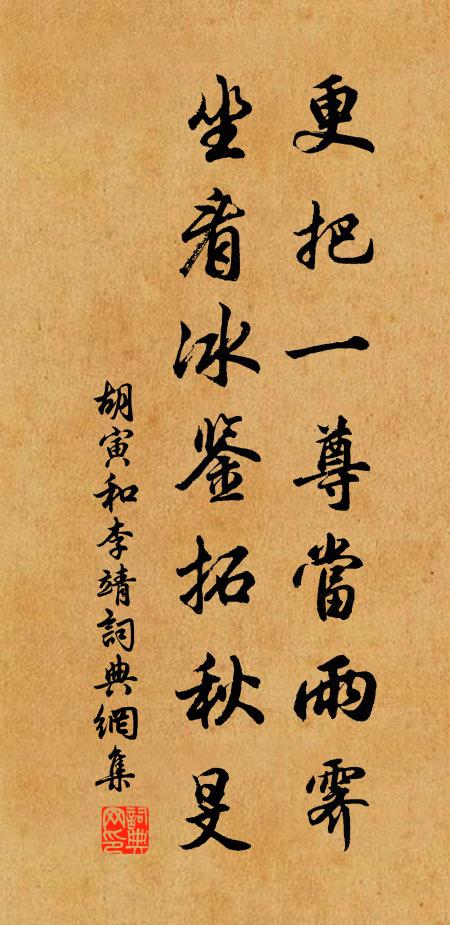 更把一尊當雨霽
坐看冰鉴拓秋旻
胡寅和李靖詞典網集
詞典网印